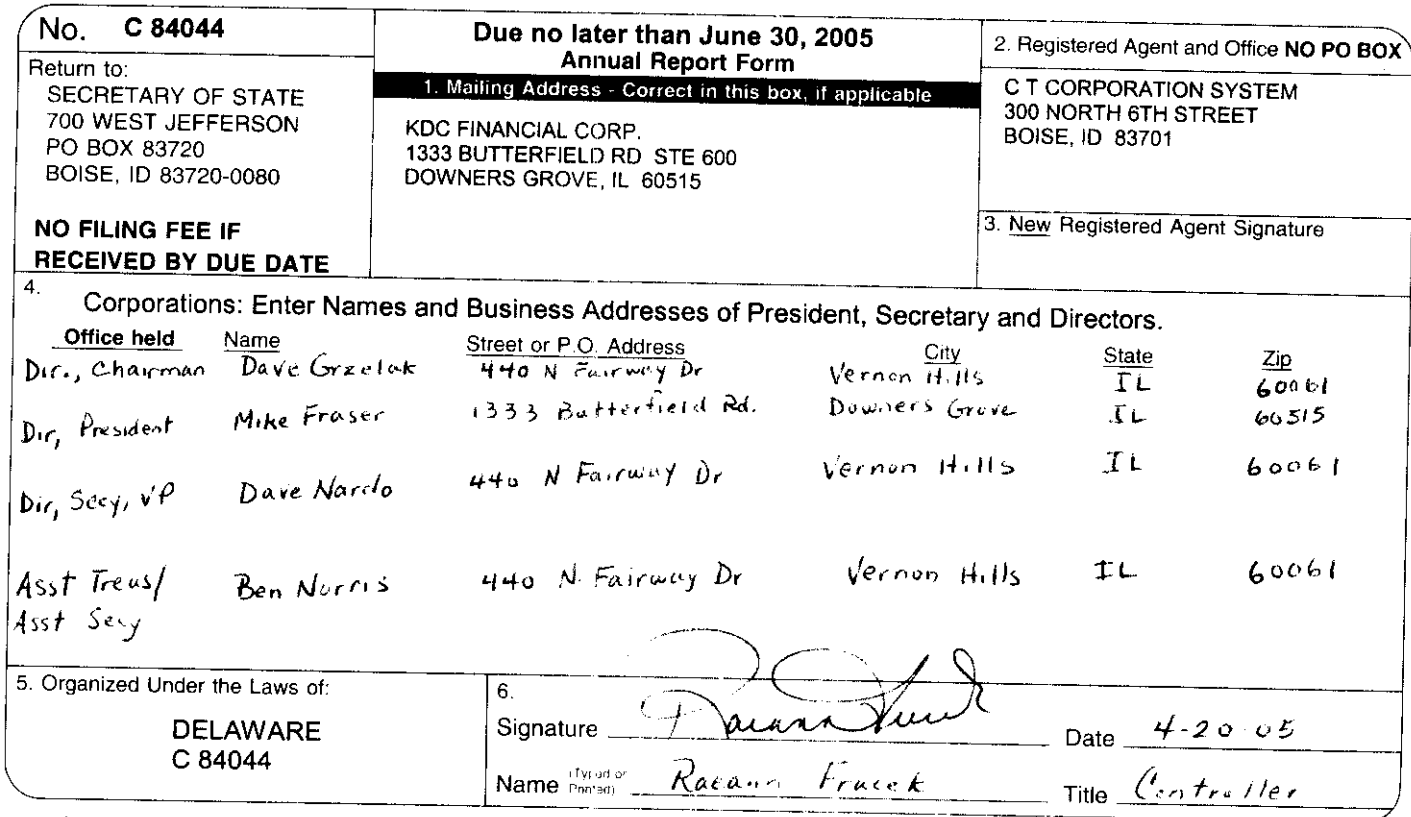 No. C 84044
Return to:
SECRETARY OF STATE
700 WEST JEFFERSON
PO BOX 83720
BOISE, ID 83720-0080
NO FILING FEE IF
RECEIVED BY DUE DATE
Due no later than June 30, 2005
Annual Report Form
1. Mailing Address - Correct in this box, if applicable
KDC FINANCIAL CORP.
1333 BUTTERFIELD RD STE 600
DOWNERS GROVE, IL 60515
2. Registered Agent and Office NO PO BOX
C T CORPORATION SYSTEM
300 NORTH 6TH STREET
BOISE, ID 83701
3. New Registered Agent Signature
4. Corporations: Enter Names and Business Addresses of President, Secretary and Directors.
Office held Name Street or P.O. Address City State Zip
Dir., Chairman Dave Grzelak 440 N Fairway Dr Vernon Hills IL 60061
Dir, President Mike Fraser 1333 Butterfield Rd. Downers Grove IL 60515
Dir, Secy, VP Dave Nardo 440 N Fairway Dr Vernon Hills IL 60061
Asst Treas/ Ben Norris 440 N. Fairway Dr Vernon Hills IL 60061
Asst Secy
5. Organized Under the Laws of:
DELAWARE
C 84044
6.
Signature Date 4-20-05
Name (Typed or Printed) Raeann Title Controller